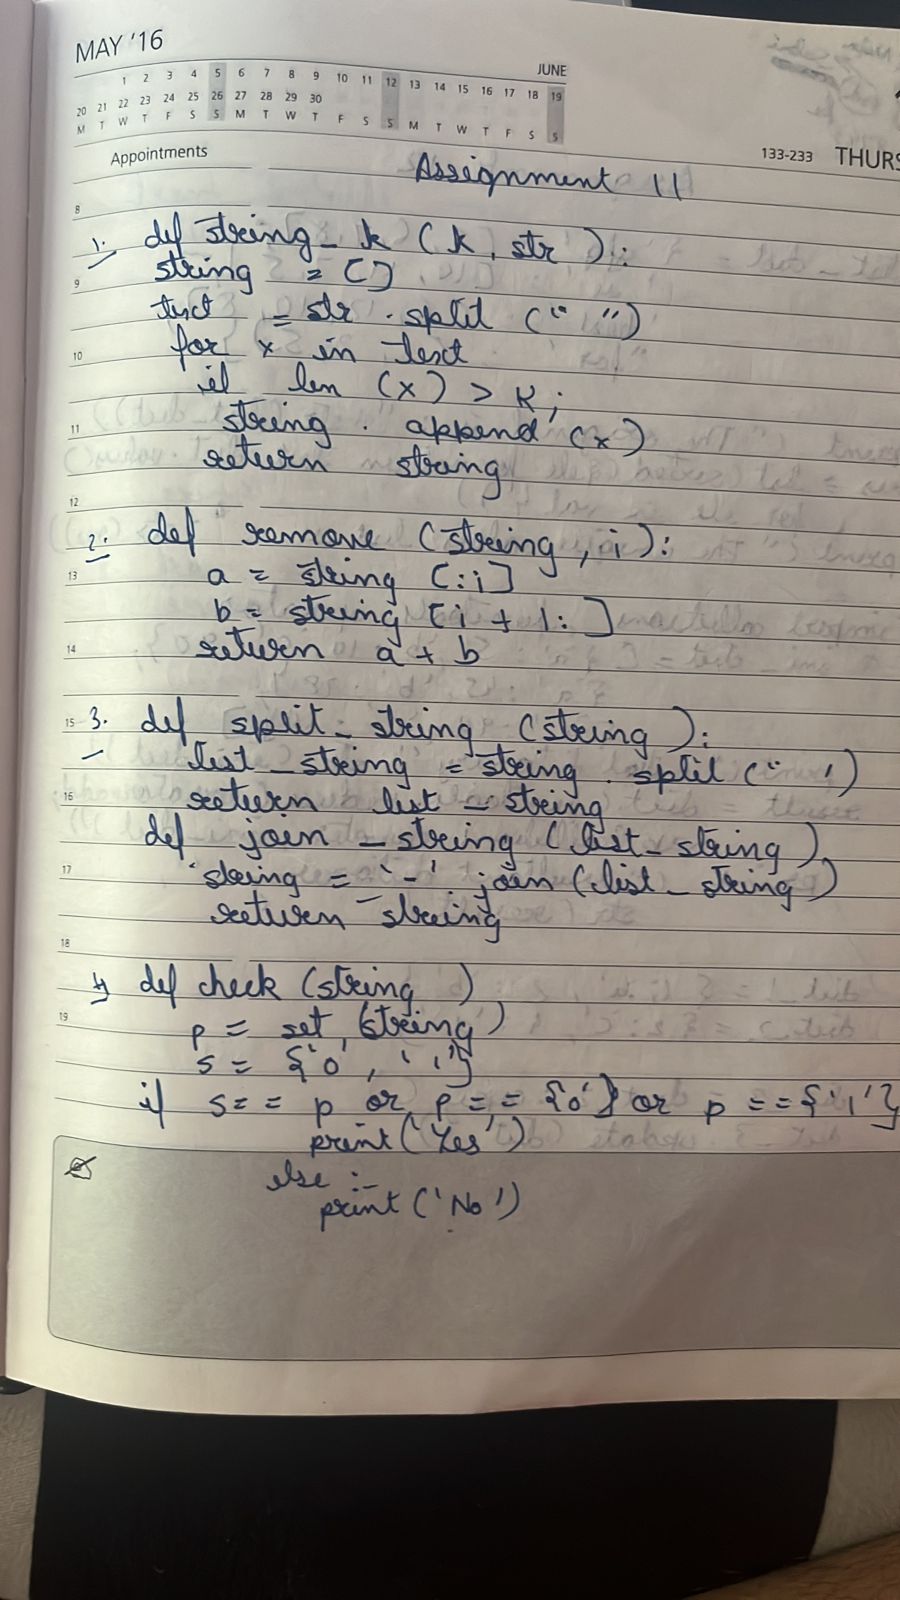 MAY '16
JUNE
1 2 3 4 5 6 7 8 9 10 11 12 13 14 15 16 17 18 19
20 21 22 23 24 25 26 27 28 29 30
M T W T F S S M T W T F S S M T W T F S S
Appointments
133-233 THURS
Assignment 11
8
1. def string_k (k, str ):
9
string = []
text = str . split (" ")
10
for x in text
if len (x) > K;
11
string . append (x)
return string
12
2. def remove (string, i):
13
a = string [:i]
b = string [i + 1: ]
14
return a + b
15
3. def split_string (string ):
list_string = string . split (" ')
16
return list_string
def join_string (list_string)
17
string = '-' . join (list_string)
return string
18
4 def check (string )
19
p = set (string)
s = {'0', '1'}
if s == p or p == {'0'} or p == {'1'}
print ('Yes')
else :-
print ('No')